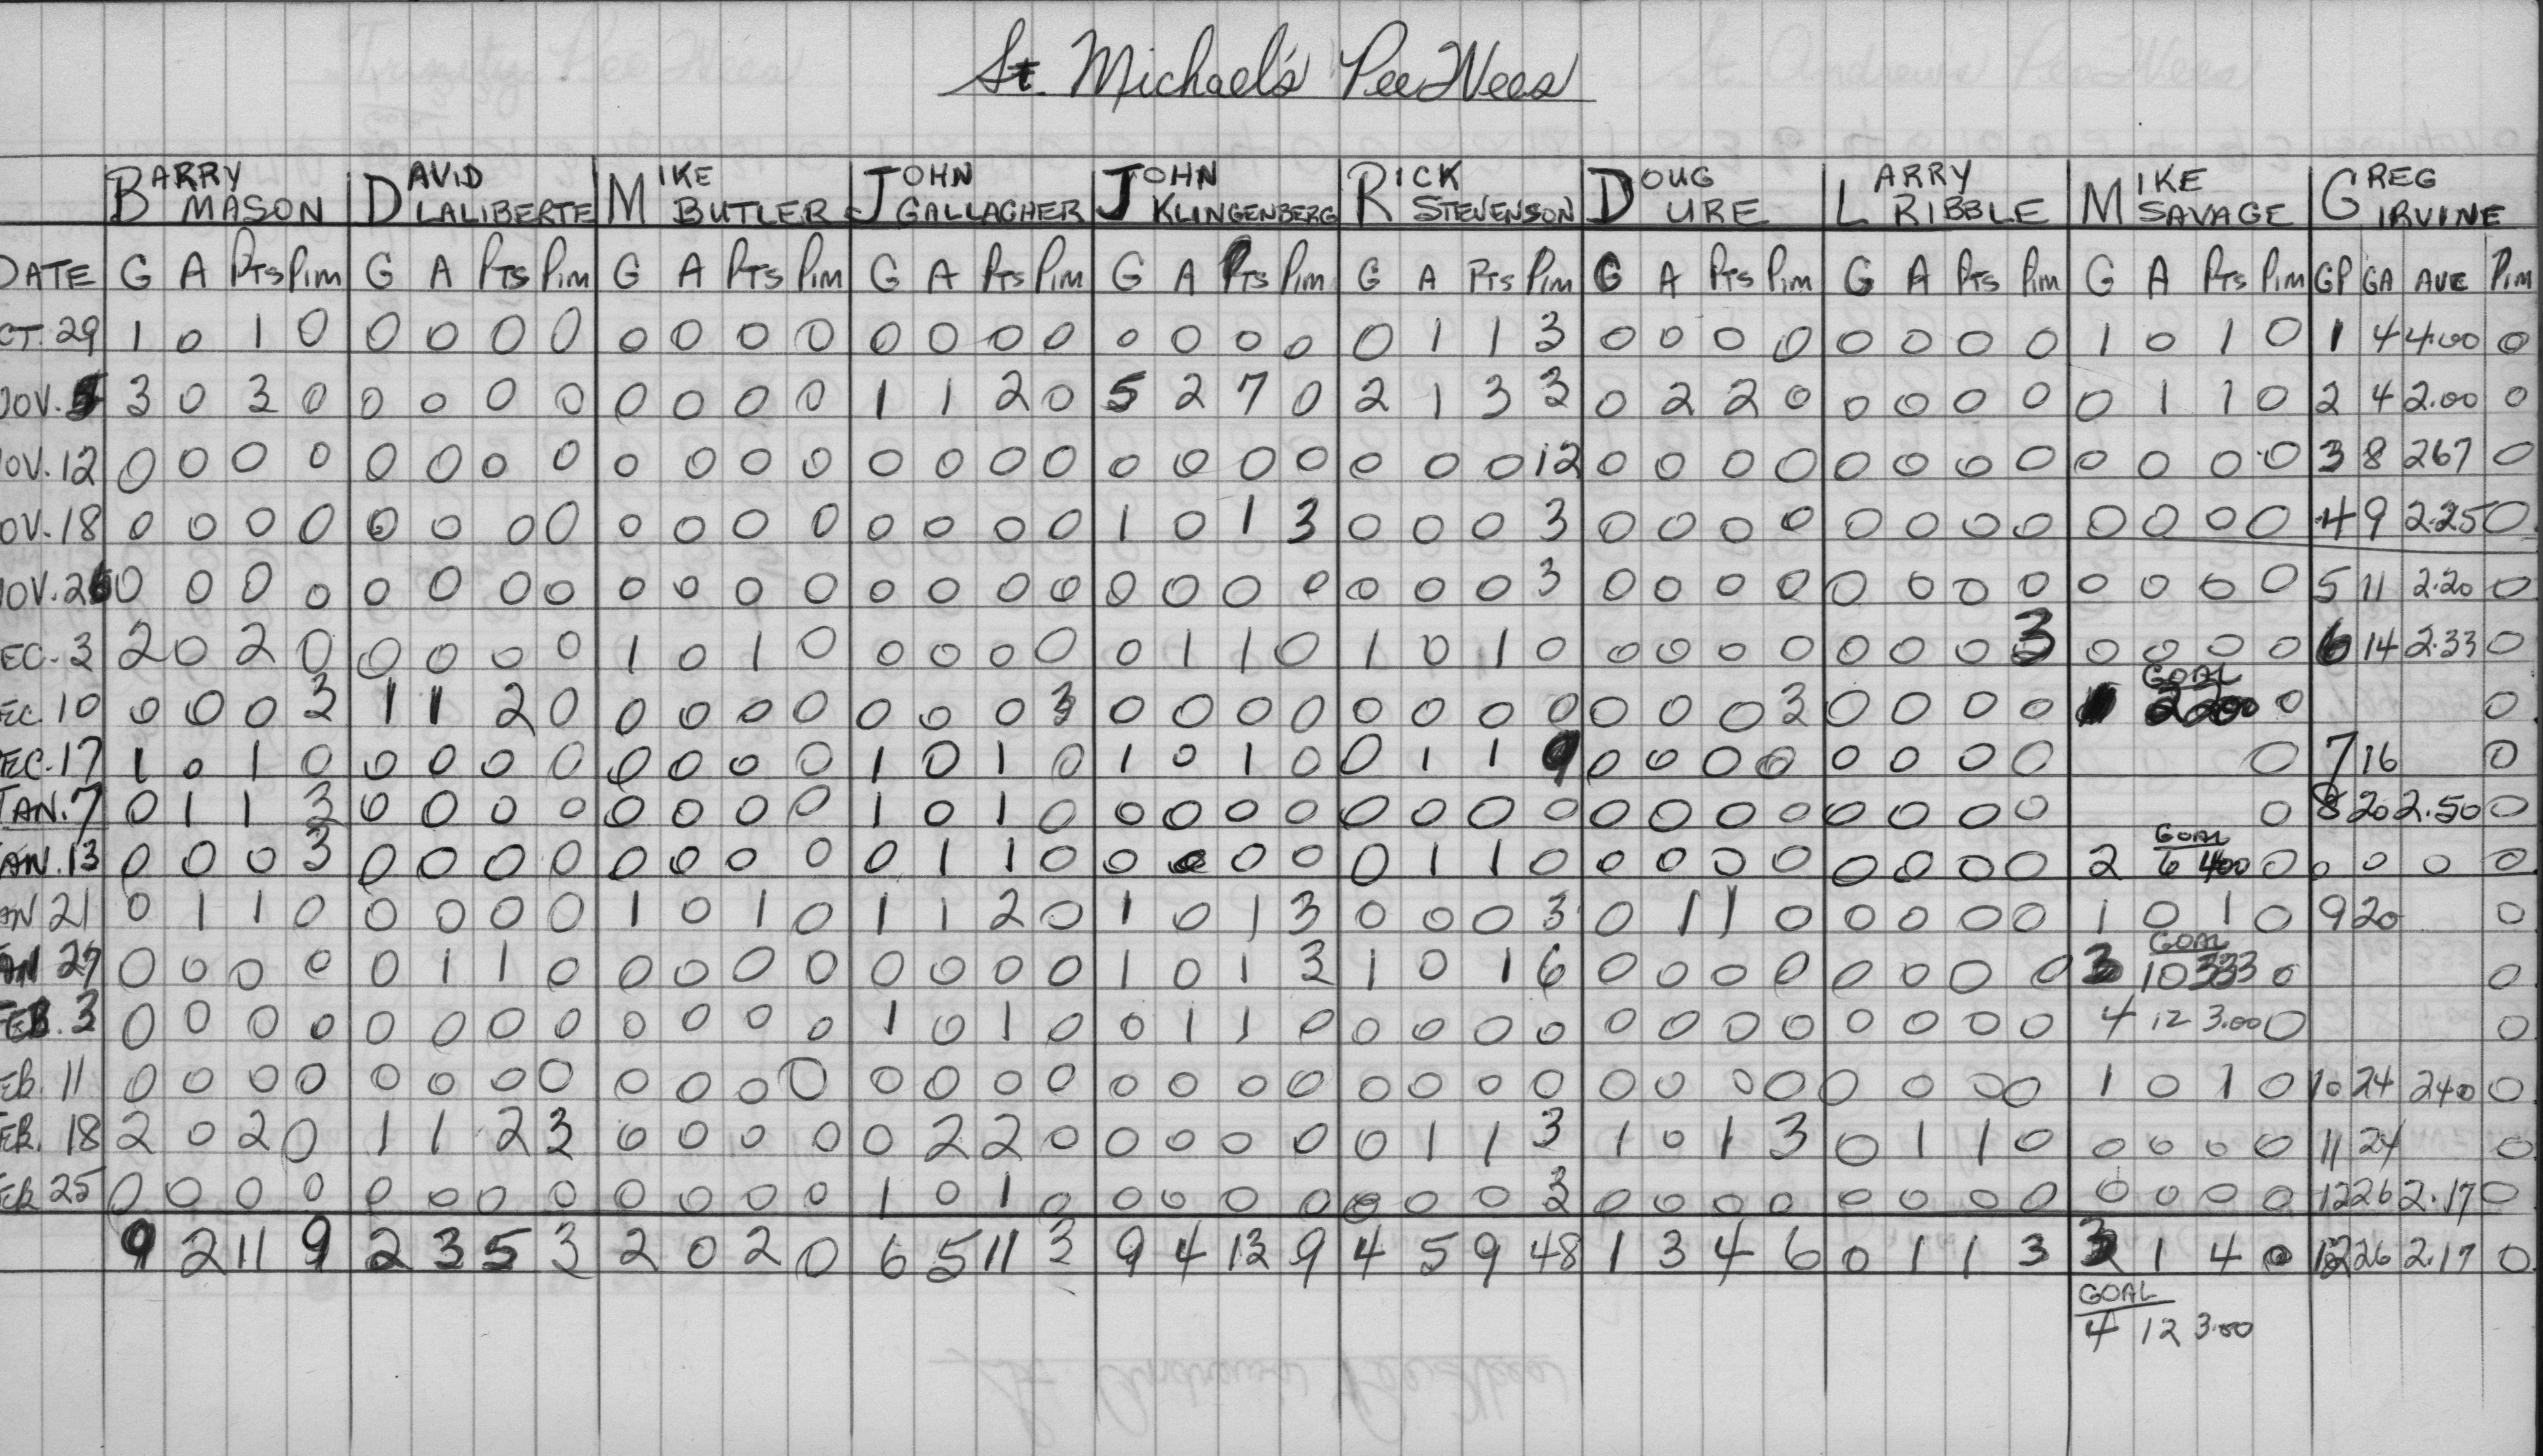 St. Michael's PeeWees
BARRY MASON DAVID LALIBERTE MIKE BUTLER JOHN GALLAGHER JOHN KLINGENBERG RICK STEVENSON DOUG URE LARRY RIBBLE MIKE SAVAGE GREG IRVINE
DATE G A PTS Pim G A PTS Pim G A PTS Pim G A PTS Pim G A PTS Pim G A PTS Pim G A PTS Pim G A PTS Pim G A PTS Pim GP GA AVE Pim
CT. 29 1 0 1 0 0 0 0 0 0 0 0 0 0 0 0 0 0 0 0 0 0 1 1 3 0 0 0 0 0 0 0 0 1 0 1 0 1 4 4.00 0
NOV. 5 3 0 3 0 0 0 0 0 0 0 0 0 1 1 2 0 5 2 7 0 2 1 3 3 0 2 2 0 0 0 0 0 0 1 1 0 2 4 2.00 0
OV. 12 0 0 0 0 0 0 0 0 0 0 0 0 0 0 0 0 0 0 0 0 0 0 0 12 0 0 0 0 0 0 0 0 0 0 0 0 3 8 267 0
OV. 18 0 0 0 0 0 0 0 0 0 0 0 0 0 0 0 0 1 0 1 3 0 0 0 3 0 0 0 0 0 0 0 0 0 0 0 0 4 9 2.25 0
NOV. 26 0 0 0 0 0 0 0 0 0 0 0 0 0 0 0 0 0 0 0 0 0 0 0 3 0 0 0 0 0 0 0 0 0 0 0 0 5 11 2.20 0
EC. 3 2 0 2 0 0 0 0 0 1 0 1 0 0 0 0 0 0 1 1 0 1 0 1 0 0 0 0 0 0 0 0 3 0 0 0 0 6 14 2.33 0
GOAL
EC. 10 0 0 0 3 1 1 2 0 0 0 0 0 0 0 0 3 0 0 0 0 0 0 0 0 0 0 0 3 0 0 0 0 1 2 200 0 0
EC. 17 1 0 1 0 0 0 0 0 0 0 0 0 1 0 1 0 1 0 1 0 0 1 1 9 0 0 0 0 0 0 0 0 0 7 16 0
JAN. 7 0 1 1 3 0 0 0 0 0 0 0 0 1 0 1 0 0 0 0 0 0 0 0 0 0 0 0 0 0 0 0 0 0 8 20 2.50 0
GOAL
AN. 13 0 0 0 3 0 0 0 0 0 0 0 0 0 1 1 0 0 0 0 0 0 1 1 0 0 0 0 0 0 0 0 0 2 6 400 0 0 0 0 0
AN 21 0 1 1 0 0 0 0 0 1 0 1 0 1 1 2 0 1 0 1 3 0 0 0 3 0 1 1 0 0 0 0 0 1 0 1 0 9 20 0
GOAL
AN 27 0 0 0 0 0 1 1 0 0 0 0 0 0 0 0 0 1 0 1 3 1 0 1 6 0 0 0 0 0 0 0 0 3 10 333 0 0
FEB. 3 0 0 0 0 0 0 0 0 0 0 0 0 1 0 1 0 0 1 1 0 0 0 0 0 0 0 0 0 0 0 0 0 4 12 3.00 0 0
EB. 11 0 0 0 0 0 0 0 0 0 0 0 0 0 0 0 0 0 0 0 0 0 0 0 0 0 0 0 0 0 0 0 0 1 0 1 0 10 24 240 0
EB. 18 2 0 2 0 1 1 2 3 0 0 0 0 0 2 2 0 0 0 0 0 0 1 1 3 1 0 1 3 0 1 1 0 0 0 0 0 11 24 0
EB 25 0 0 0 0 0 0 0 0 0 0 0 0 1 0 1 0 0 0 0 0 0 0 0 3 0 0 0 0 0 0 0 0 0 0 0 0 12 26 2.17 0
9 2 11 9 2 3 5 3 2 0 2 0 6 5 11 3 9 4 13 9 4 5 9 48 1 3 4 6 0 1 1 3 3 1 4 0 12 26 2.17 0
GOAL
4 12 3.00